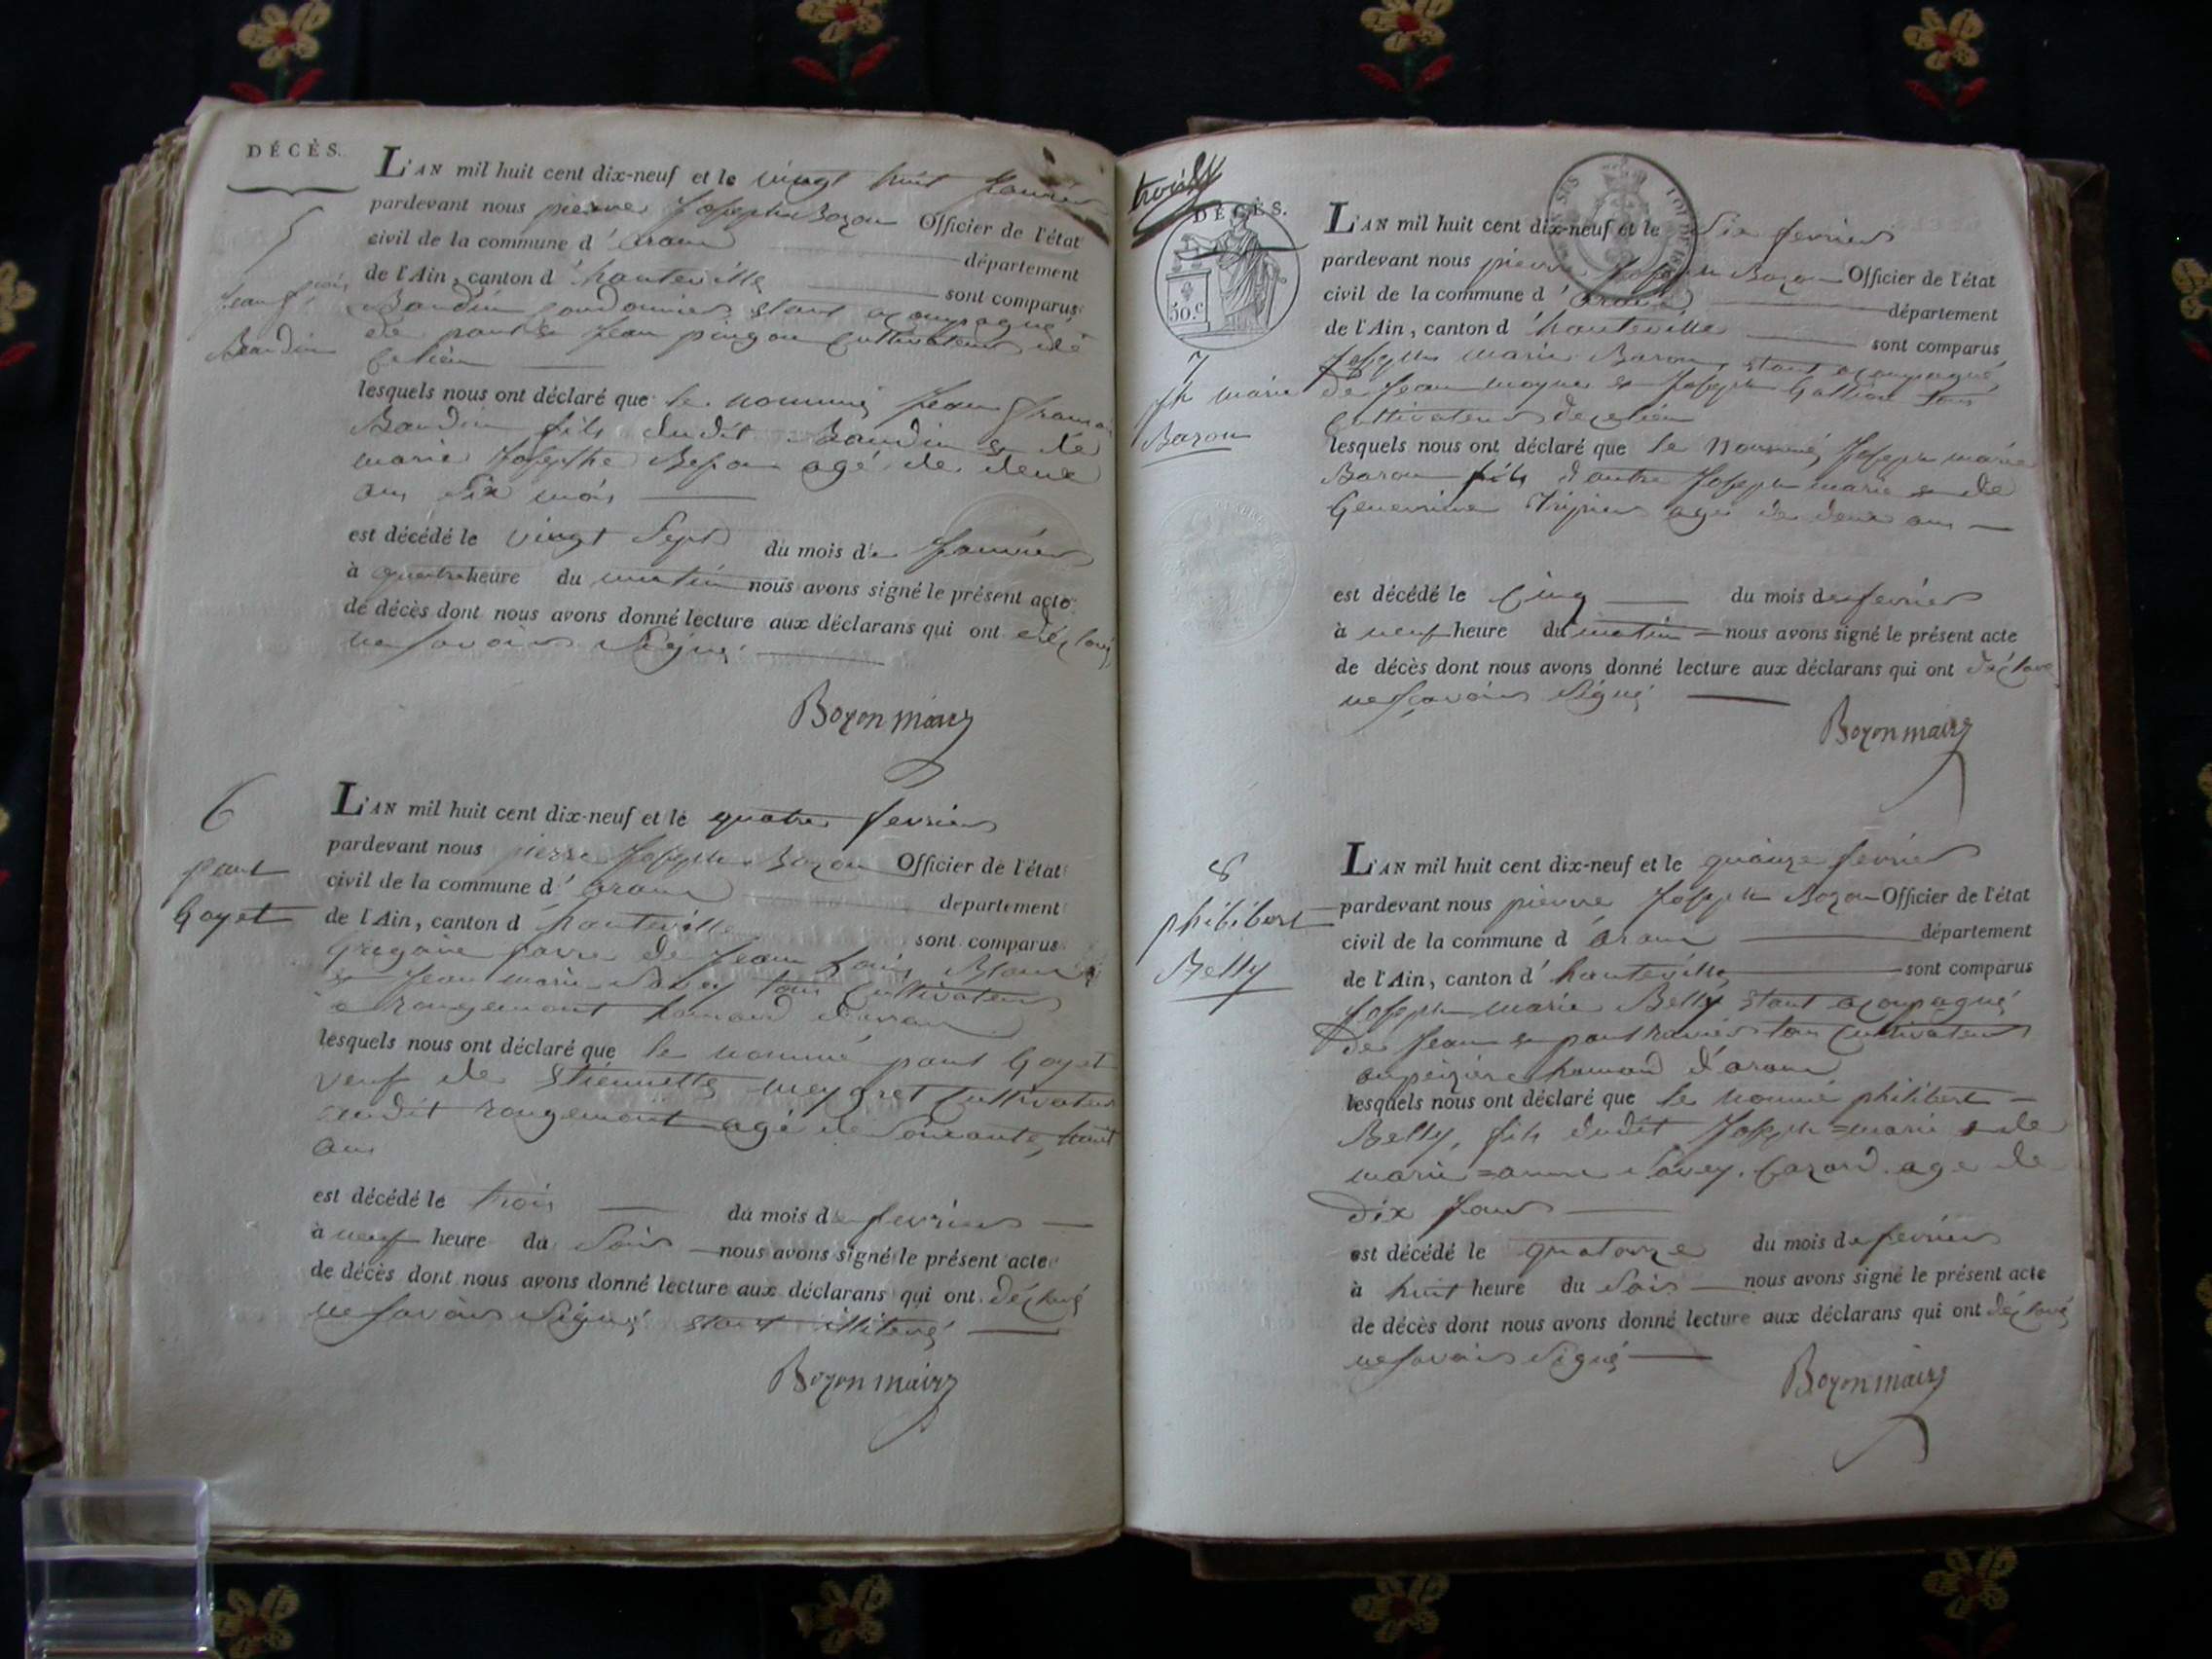 DÉCÈS.
5
jean f.ois
Baudin
L'AN mil huit cent dix-neuf et le vingt huit janvier
pardevant nous pierre joseph Bozon Officier de l'état
civil de la commune d' aranc département
de l'Ain, canton d' hauteville sont comparus
Baudin étant acompagné
de jean pingon cultivateur
lesquels nous ont déclaré que le nommé jean françois
Baudin fils dudit Baudin & de
marie josephe agé de deux
ans six mois
est décédé le vingt sept du mois de janvier
à quatre heure du matin nous avons signé le présent acte
de décès dont nous avons donné lecture aux déclarans qui ont déclaré
ne savoir signé
Bozon maire
6
paul
Goyet
L'AN mil huit cent dix-neuf et le quatre fevrier
pardevant nous pierre joseph Bozon Officier de l'état
civil de la commune d' aranc département
de l'Ain, canton d hauteville sont comparus
favre de jean Louis
& jean marie Savey tous cultivateurs
a rougemont hamaud d'aranc
lesquels nous ont déclaré que le nommé paul Goyet
veuf de etiennette cultivateur
audit rougemont agé de soixante huit
ans
est décédé le trois du mois de fevrier
à neuf heure du soir nous avons signé le présent acte
de décès dont nous avons donné lecture aux déclarans qui ont déclaré
ne savoir signé etant illiteré
Bozon maire
DÉCÈS.
50.c
7
jph marie
Baron
L'AN mil huit cent dix-neuf et le six fevrier
pardevant nous pierre joseph Bozon Officier de l'état
civil de la commune d' aranc département
de l'Ain, canton d' hauteville sont comparus
joseph marie Baron, etant acompagné
de jean & joseph tous
cultivateurs de ce lieu
lesquels nous ont déclaré que le nommé joseph marie
Baron fils d'autre joseph marie & de
Genevieve agé de deux ans
est décédé le cinq du mois de fevrier
à neuf heure du matin nous avons signé le présent acte
de décès dont nous avons donné lecture aux déclarans qui ont déclaré
ne sçavoir signé
Bozon maire
8
philibert
Belly
L'AN mil huit cent dix-neuf et le quinze fevrier
pardevant nous pierre joseph Bozon Officier de l'état
civil de la commune d aranc département
de l'Ain, canton d' hauteville sont comparus
joseph marie Belly etant acompagné
de jean & paul tous cultivateurs
hamaud d'aranc
lesquels nous ont déclaré que le nommé philibert
Belly, fils dudit joseph=marie & de
marie=anne Savey. age de
dix jours
est décédé le quatorze du mois de fevrier
à huit heure du soir nous avons signé le présent acte
de décès dont nous avons donné lecture aux déclarans qui ont déclaré
ne savoir signé
Bozon maire